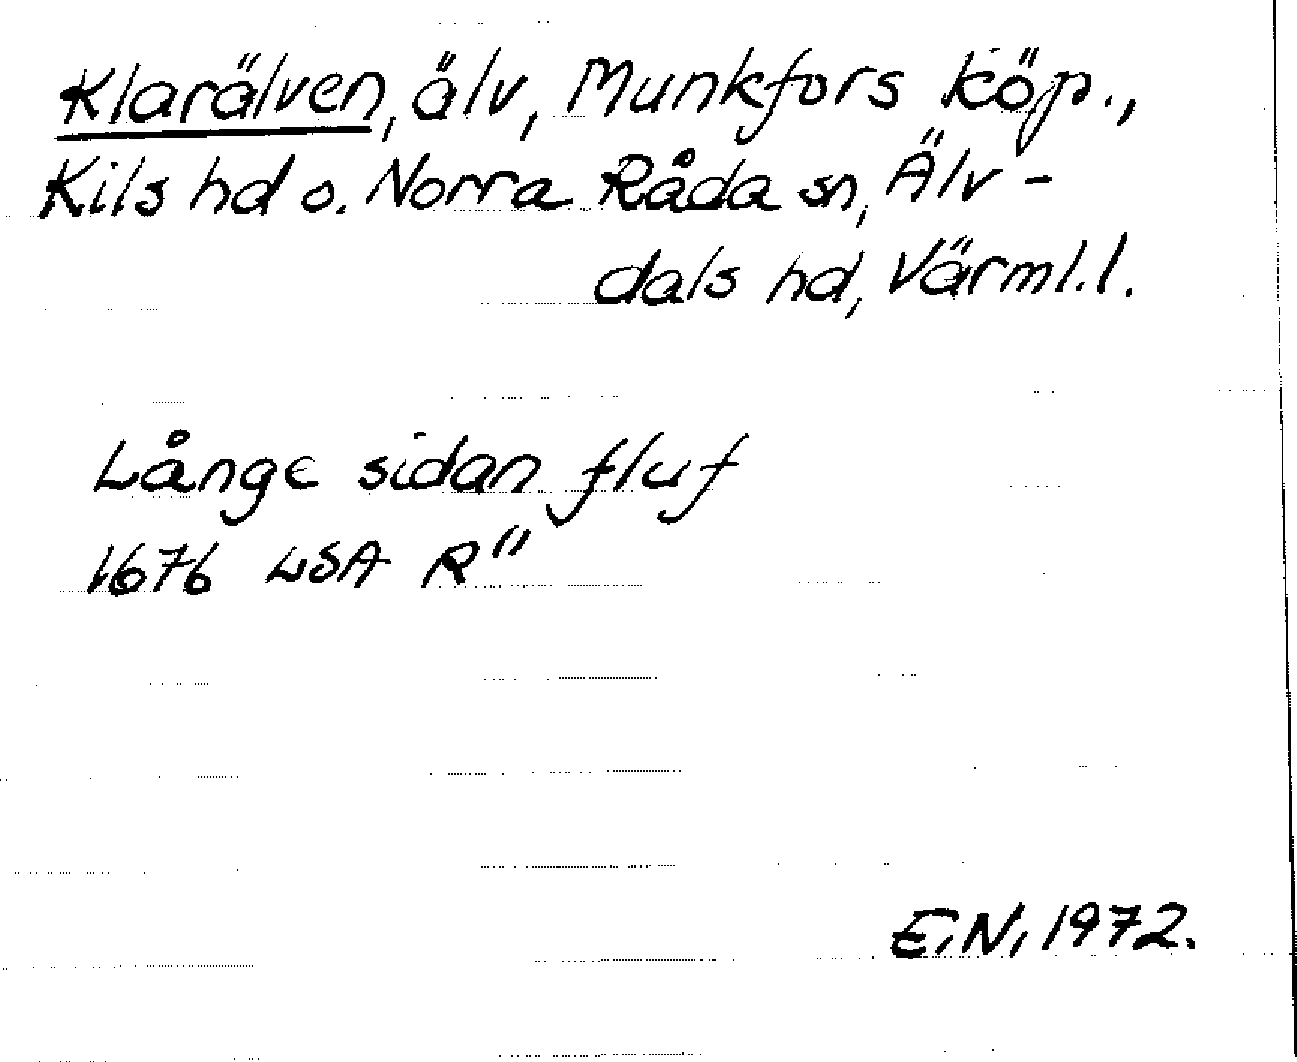 Klarälven, älv, Munkfors köp.,
Kils hd o. Norra Råda sn, Älv-
dals hd, Värml.l.
Långe sidan fluf
1676 LSA R"
E.N. 1972.